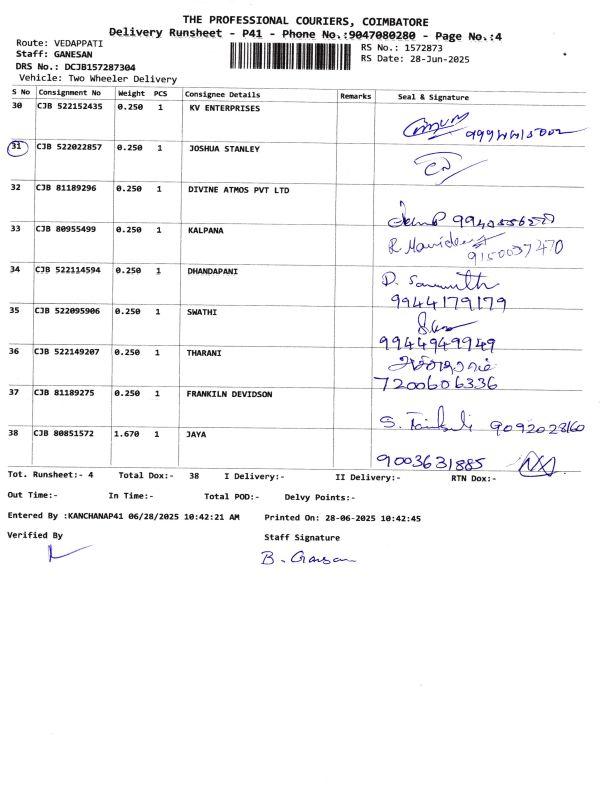 THE PROFESSIONAL COURIERS, COIMBATORE
Delivery Runsheet - P41 - Phone No.:9047080280 - Page No.:4
Route: VEDAPPATI RS No.: 1572873
Staff: GANESAN RS Date: 28-Jun-2025
DRS No.: DCJB157287304
Vehicle: Two Wheeler Delivery
S No Consignment No Weight PCS Consignee Details Remarks Seal & Signature
30 CJB 522152435 0.250 1 KV ENTERPRISES
31 CJB 522022857 0.250 1 JOSHUA STANLEY
32 CJB 81189296 0.250 1 DIVINE ATMOS PVT LTD
33 CJB 80955499 0.250 1 KALPANA
9150037470
34 CJB 522114594 0.250 1 DHANDAPANI
9944179179
35 CJB 522095906 0.250 1 SWATHI
9944949949
36 CJB 522149207 0.250 1 THARANI
7200606336
37 CJB 81189275 0.250 1 FRANKILN DEVIDSON
S. 9092028160
38 CJB 80851572 1.670 1 JAYA
9003631885
Tot. Runsheet:- 4 Total Dox:- 38 I Delivery:- II Delivery:- RTN Dox:-
Out Time:- In Time:- Total POD:- Delvy Points:-
Entered By :KANCHANAP41 06/28/2025 10:42:21 AM Printed On: 28-06-2025 10:42:45
Verified By Staff Signature